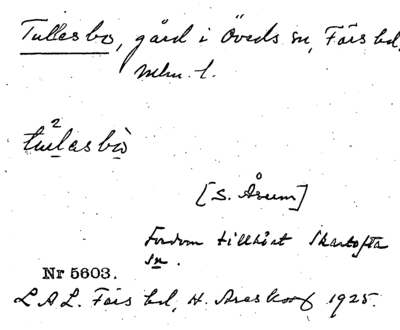 Tullesbo, gård i Öveds sn, Färs hd,
Mlm. l.
2
tulasbò
[S. Åsum]
Fordom tillhört Skartofta
sn.
Nr 5603.
L A L. Färs hd, H. Areskoog 1925.